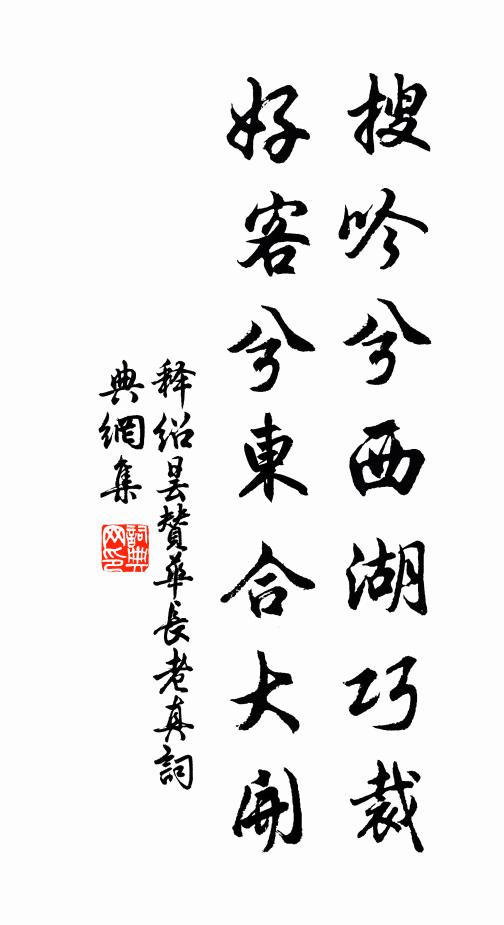 搜吟兮西湖巧裁
好客兮東合大開
释紹曇贊華長老真詞
典網集
詞典
网印